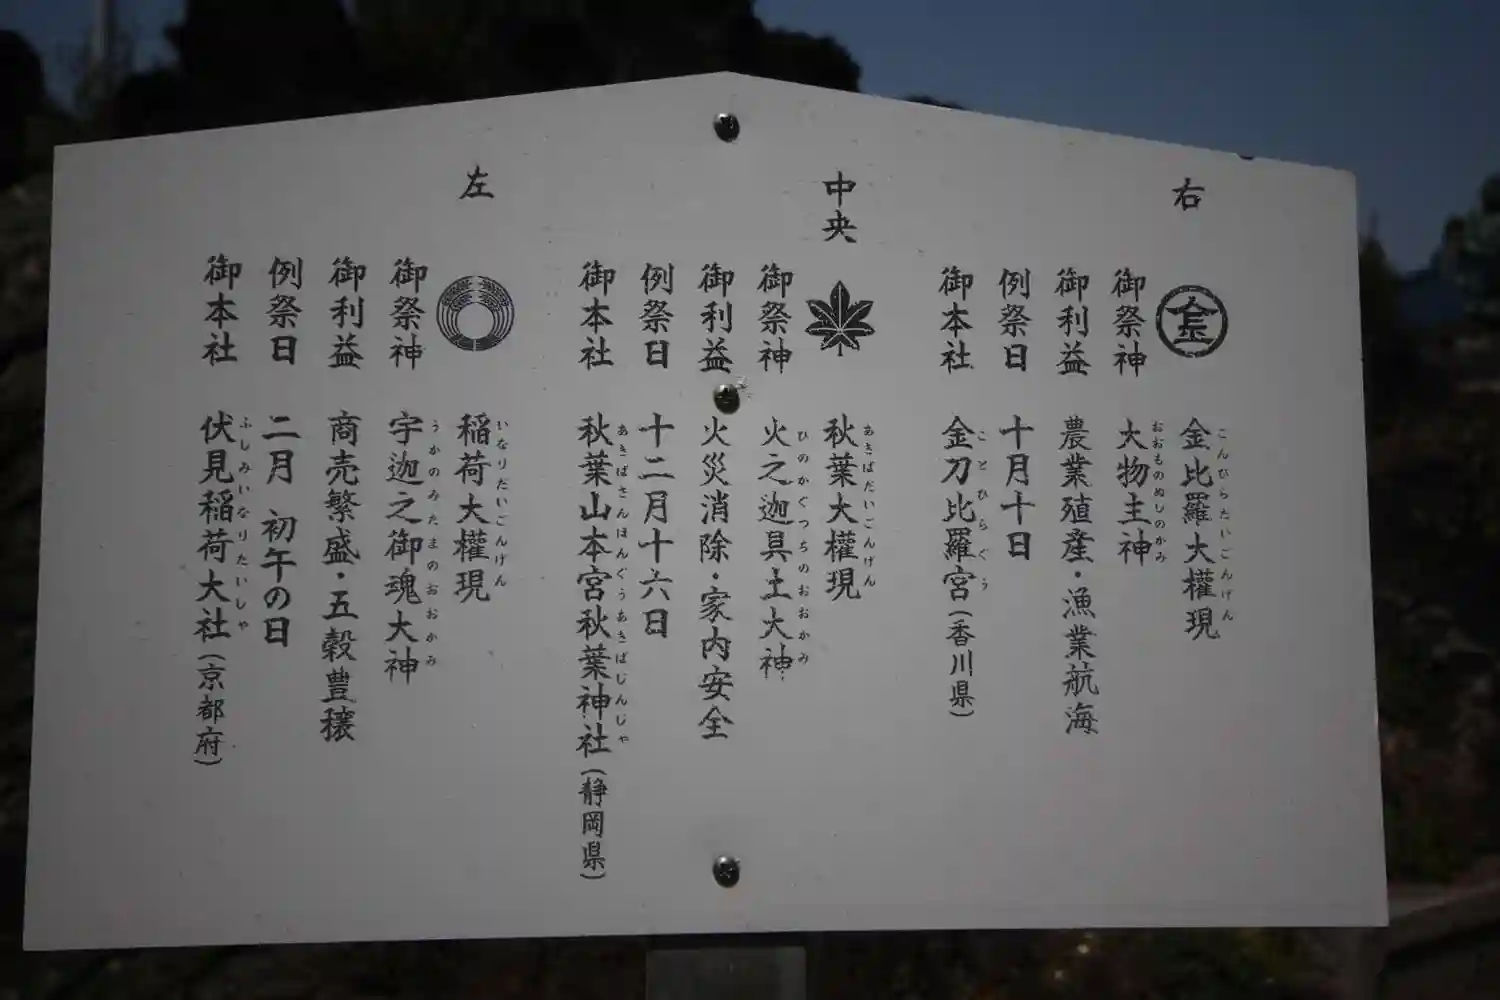 右
金
金比羅大權現
こんぴらだいごんげん
御祭神 大物主神
おおものぬしのかみ
御利益 農業殖産・漁業航海
例祭日 十月十日
御本社 金刀比羅宮(香川県)
ことひらぐう
中央
秋葉大權現
あきばだいごんげん
御祭神 火之迦具土大神
ひのかぐつちのおおかみ
御利益 火災消除・家内安全
例祭日 十二月十六日
御本社 秋葉山本宮秋葉神社(静岡県)
あきばさんほんぐうあきばじんじゃ
左
稲荷大權現
いなりだいごんげん
御祭神 宇迦之御魂大神
うかのみたまのおおかみ
御利益 商売繁盛・五穀豊穣
例祭日 二月 初午の日
御本社 伏見稲荷大社(京都府)
ふしみいなりたいしゃ